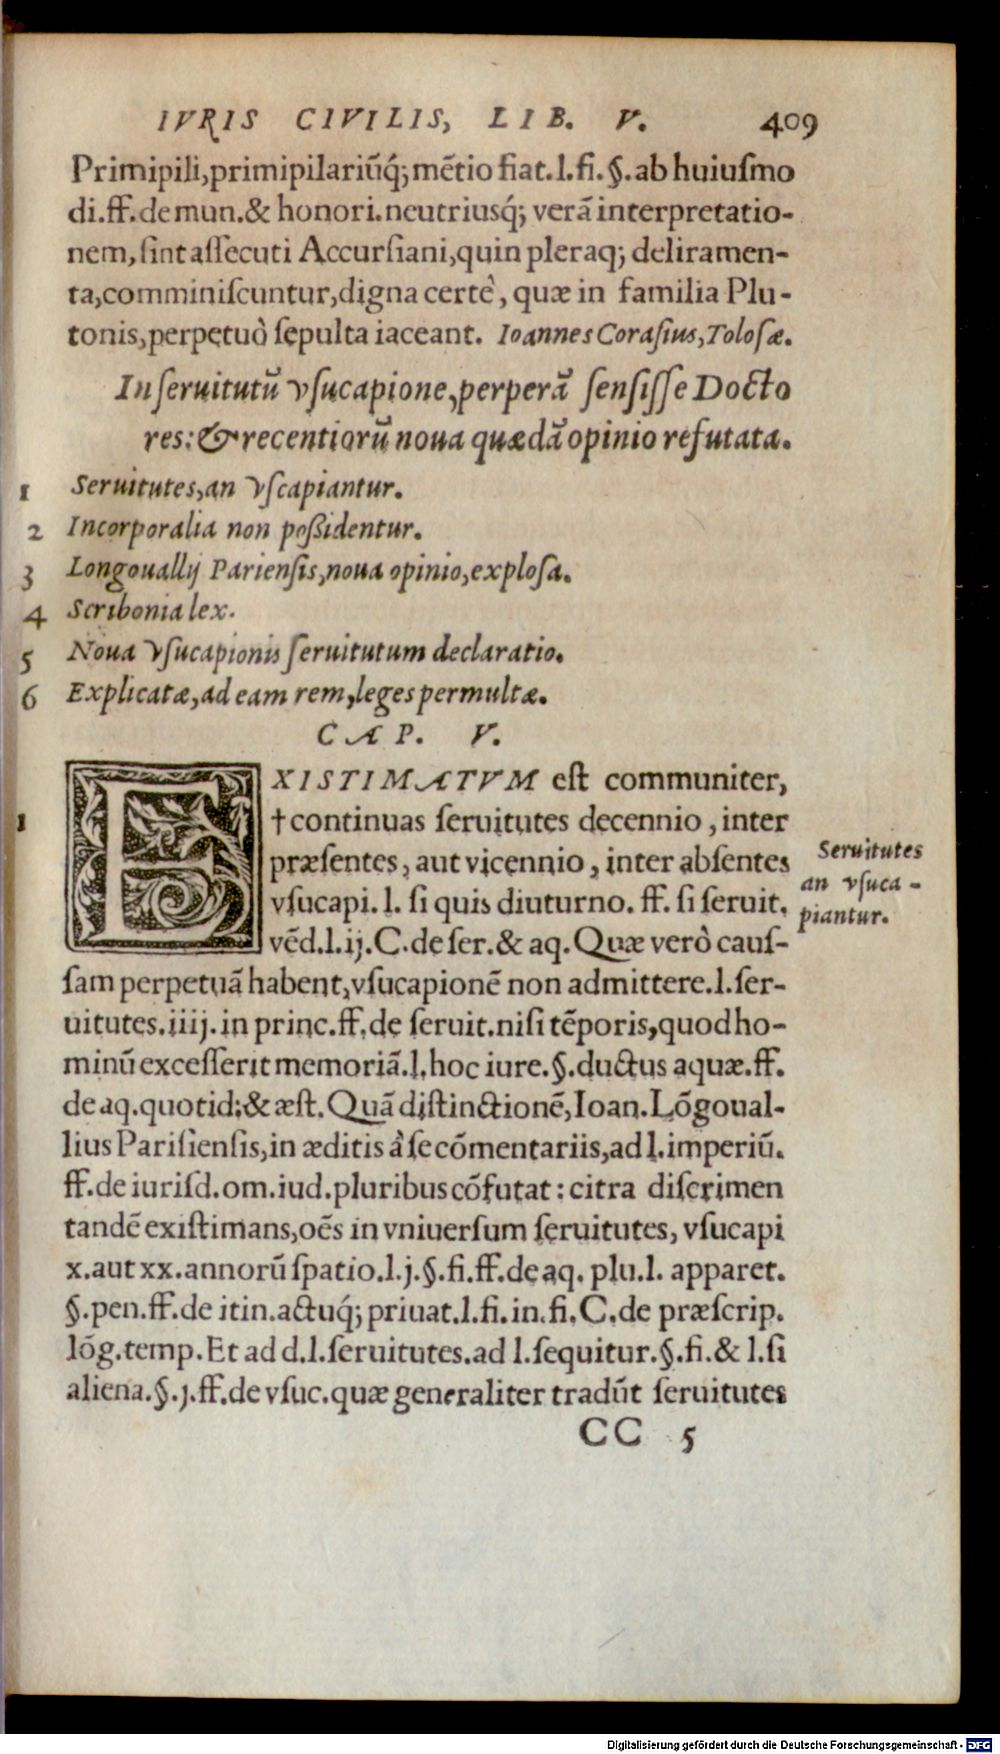 IVRIS CIVILIS, LIB. V. 409
Primipili,primipilariūq́; mētio fiat.l.fi.§.ab huiuſmo
di.ff.de mun.& honori.neutriusq́; verā interpretatio-
nem,ſint aſſecuti Accurſiani,quin pleraq; deliramen-
ta,comminiſcuntur,digna certè, quæ in familia Plu-
tonis,perpetuò ſepulta iaceant. Ioannes Coraſius,Toloſæ.
In ſeruitutū vſucapione,perperā ſenſiſſe Docto
res:& recentiorū noua quædā opinio refutata.
1 Seruitutes,an vſcapiantur.
2 Incorporalia non poßidentur.
3 Longouallij Parienſis,noua opinio,exploſa.
4 Scribonia lex.
5 Noua vſucapionis ſeruitutum declaratio.
6 Explicatæ,ad eam rem,leges permultæ.
CAP. V.
EXISTIMATVM eſt communiter,
1 †continuas ſeruitutes decennio, inter
præſentes, aut vicennio, inter abſentes
vſucapi. l. ſi quis diuturno. ff. ſi ſeruit.
vēd.l.ij.C.de ſer.& aq. Quæ verò cauſ-
Seruitutes
an vſuca-
piantur.
ſam perpetuā habent,vſucapionē non admittere.l.ſer-
uitutes.iiij.in princ.ff.de ſeruit.niſi tēporis,quod ho-
minū exceſſerit memoriā.l.hoc iure.§.ductus aquæ.ff.
de aq.quotid:& æſt. Quā diſtinctionē, Ioan. Lōgoual-
lius Pariſienſis,in æditis à ſe cōmentariis,ad l.imperiū.
ff.de iuriſd.om.iud.pluribus cōfutat: citra diſcrimen
tandē exiſtimans,oēs in vniuerſum ſeruitutes, vſucapi
x.aut xx.annorū ſpatio.l.j.§.fi.ff.de aq. plu.l. apparet.
§.pen.ff.de itin.actuq́; priuat.l.fi.in.fi.C.de præſcrip.
lōg.temp. Et ad d.l.ſeruitutes.ad l.ſequitur.§.fi.& l.ſi
aliena.§.j.ff.de vſuc.quæ generaliter tradūt ſeruitutes
CC 5
Digitalisierung gefördert durch die Deutsche Forschungsgemeinschaft - DFG